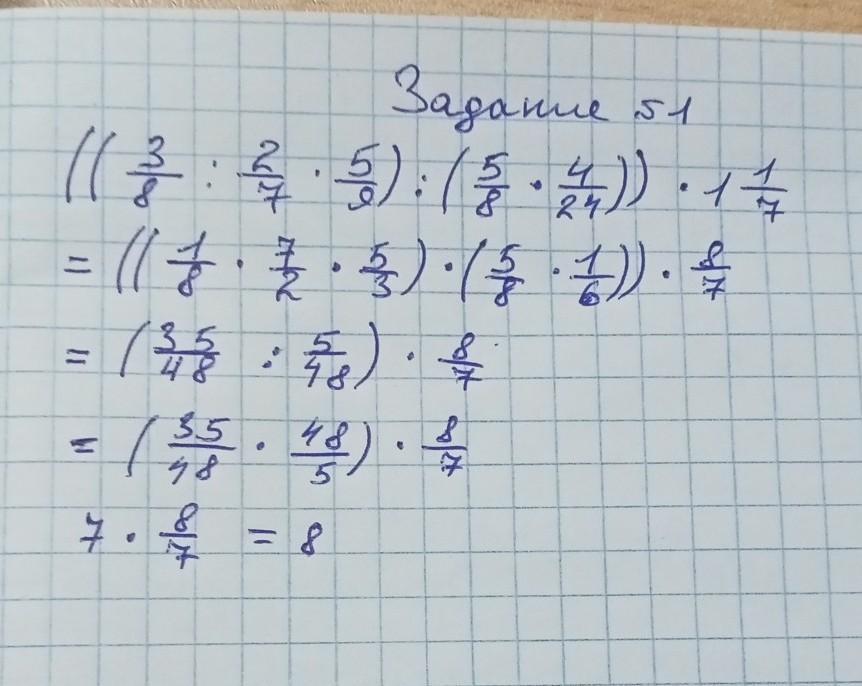 Задание 51
((3/8 : 2/7 · 5/9) : (5/8 · 4/24)) · 1 1/7
= ((1/8 · 7/2 · 5/3) · (5/8 · 1/6)) · 8/7
= (35/48 : 5/48) · 8/7
= (35/48 · 48/5) · 8/7
7 · 8/7 = 8